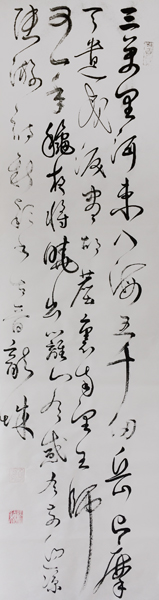 三萬里河東入海五千仞岳上摩
天遺民淚盡胡塵裏南望王師
又一年穐夜將曉出籬門感迎涼
陸游詩